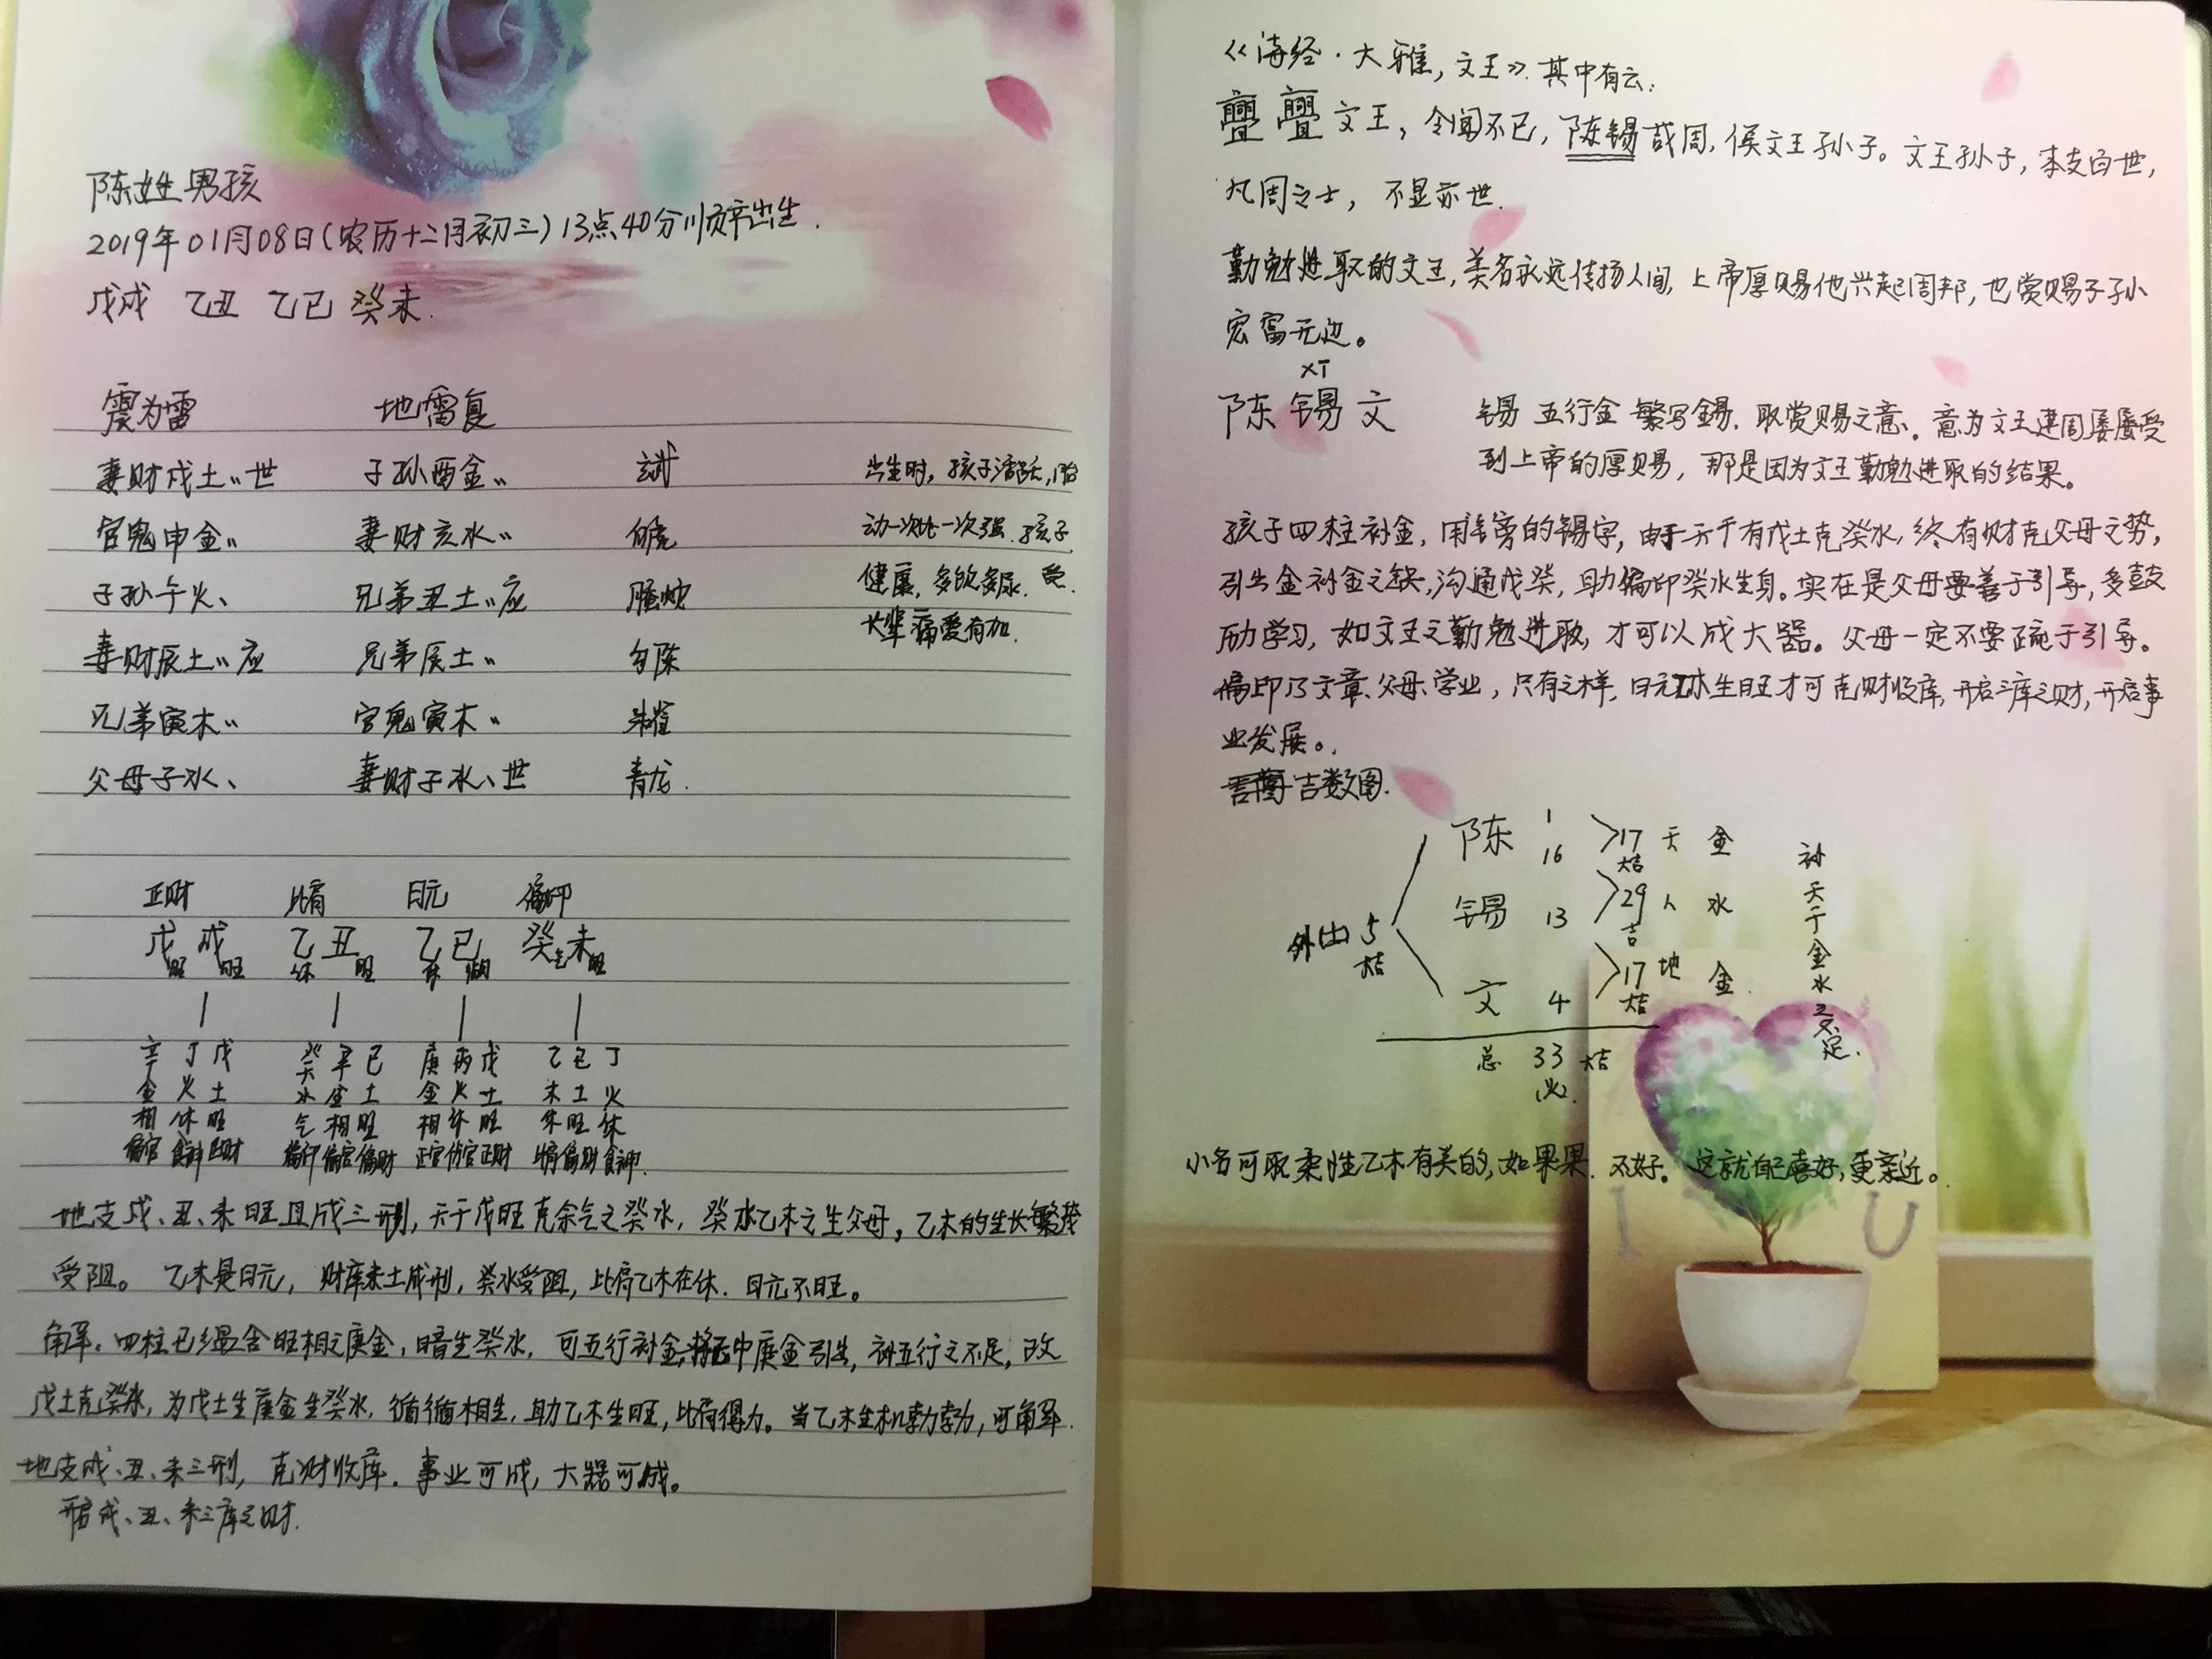 陈姓男孩
2019年01月08日(农历十二月初三)13点40分顺产出生.
戊戌 乙丑 乙巳 癸未.
震为雷 地雷复
妻财戌土〃世 子孙酉金〃 玄武
官鬼申金〃 妻财亥水〃 白虎
子孙午火、 兄弟丑土〃应 螣蛇
妻财辰土〃应 兄弟辰土〃 勾陈
兄弟寅木〃 官鬼寅木〃 朱雀
父母子水、 妻财子水、世 青龙.
出生时,孩子活跃,胎
动一次比一次强.孩子
健康,多饮多尿.受.
长辈疼爱有加.
正财 比肩 日元 偏印
戊戌 乙丑 乙巳 癸未
旺 旺 休 旺 休 相 气 旺
辛丁戊 癸辛己 庚丙戊 乙己丁
金火土 水金土 金火土 木土火
相休旺 气相旺 相休旺 休旺休
偏官食神正财 偏印偏官偏财 正官伤官正财 比肩偏财食神.
地支戌、丑、未旺且成三刑,天干戊旺克余气之癸水,癸水乙木之生父母,乙木的生长繁茂
受阻。乙木是日元,财库未土成刑,癸水受阻,比肩乙木在休.日元不旺。
解:四柱已经含旺相之庚金,暗生癸水,可五行补金,将中庚金引出,补五行之不足,改
戊土克癸水,为戊土生庚金生癸水,循循相生,助乙木生旺,比肩得力。当乙木生机勃勃,可解.
地支戌、丑、未三刑,克财收库.事业可成,大器可成。
开启戌、丑、未三库之财.
《诗经·大雅,文王》.其中有云:
亹亹文王,令闻不已,陈锡哉周,侯文王孙子。文王孙子,本支百世,
凡周之士,不显亦世.
勤勉进取的文王,美名永远传扬人间,上帝厚赐他兴起周邦,也赏赐子子孙
宏富无边。
XT
陈锡文
锡 五行金 繁写錫.取赏赐之意.意为文王建周屡屡受
到上帝的厚赐,那是因为文王勤勉进取的结果。
孩子四柱补金,用钅旁的锡字,由于天干有戊土克癸水,终有财克父母之势,
引出金补金之缺,沟通戊癸,助偏印癸水生身。实在是父母要善于引导,多鼓
励学习,如文王之勤勉进取,才可以成大器。父母一定不要疏于引导。
偏印乃文章、父母、学业,只有这样,日元乙木生旺才可克财收库,开启三库之财,开启事
业发展。.
吉数图.
1
陈 16 17 天 金
大吉
锡 13 29 人 水
吉
文 4 17 地 金.
大吉
外(土) 5
大吉
总 33 大吉
火.
补天干金水之不足.
小名可取柔性乙木有关的,如果果.不好.这就自己喜好,更亲近。